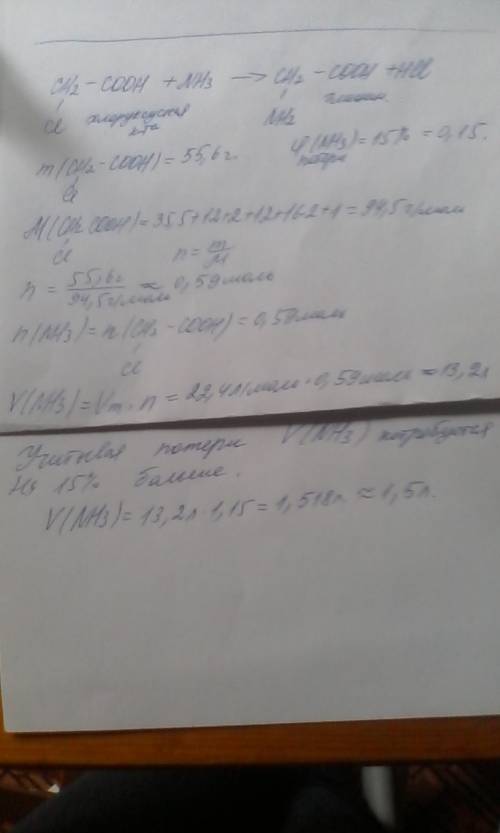 CH2 – COOH + NH3 → CH2 – COOH + HCl
Cl хлоруксусная к-та NH2 глицин
m(CH2 – COOH) = 55,6 г. φ(NH3) = 15% = 0,15.
Cl потери
M(CH2 COOH) = 35,5+12+2+12+16·2+1 = 94,5 г/моль
Cl n = m/M
n = 55,6г / 94,5г/моль ≈ 0,59 моль
n(NH3) = n(CH2 – COOH) = 0,59 моль
Cl
V(NH3) = Vm · n = 22,4 л/моль · 0,59 моль ≈ 13,2 л
Учитывая потери V(NH3) потребуется
на 15% больше.
V(NH3) = 13,2 л · 1,15 = 1,518 л. ≈ 1,5 л.